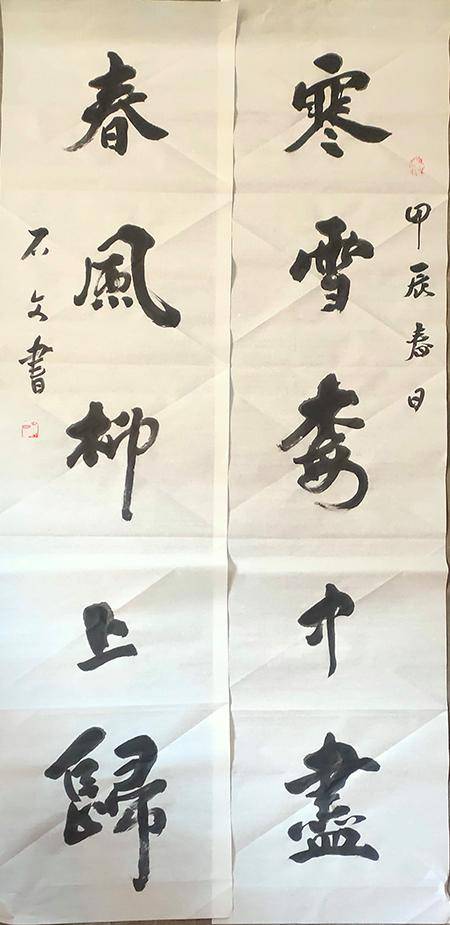 甲辰春日
寒雪梅中盡
春風柳上歸
石文書